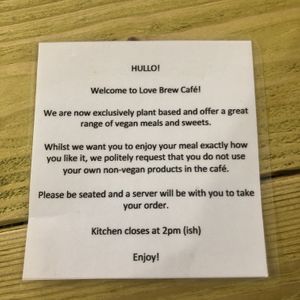 HULLO!
Welcome to Love Brew Café!
We are now exclusively plant based and offer a great
range of vegan meals and sweets.
Whilst we want you to enjoy your meal exactly how
you like it, we politely request that you do not use
your own non-vegan products in the café.
Please be seated and a server will be with you to take
your order.
Kitchen closes at 2pm (ish)
Enjoy!